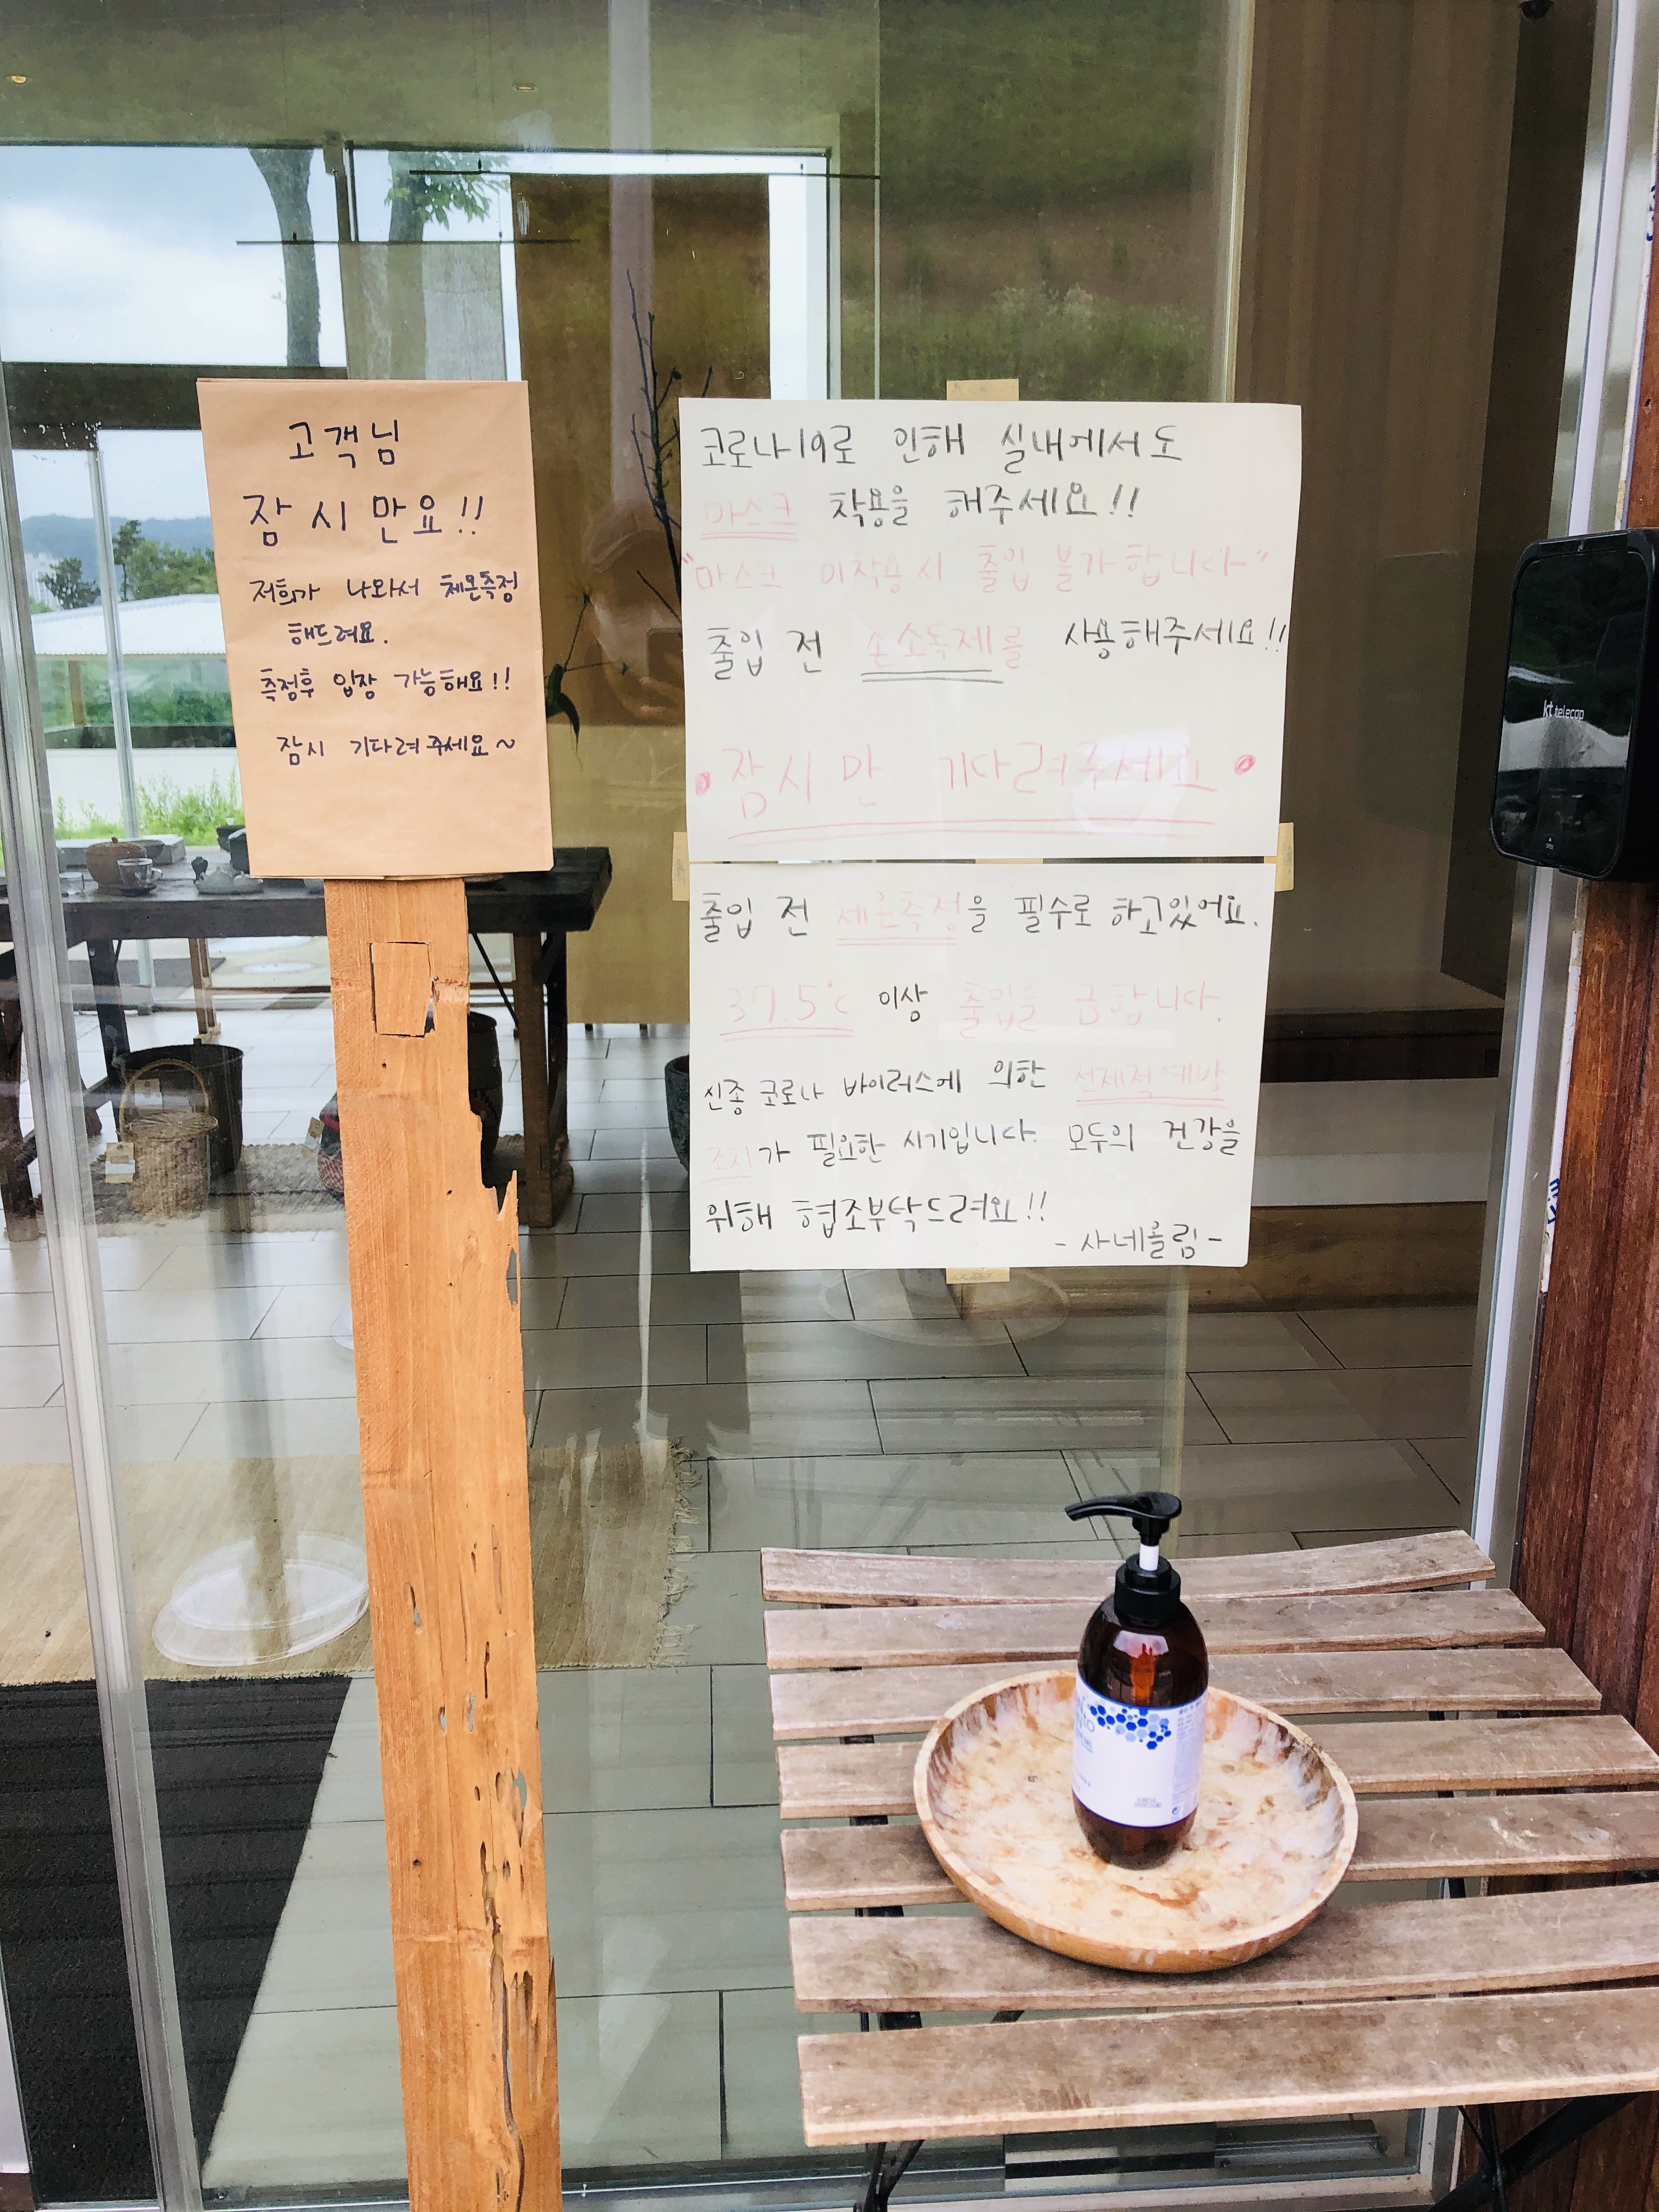 고객님
잠시만요!!
저희가 나와서 체온측정
해드려요.
측정후 입장 가능해요!!
잠시 기다려주세요~
코로나19로 인해 실내에서도
마스크 착용을 해주세요!!
"마스크 미착용시 출입 불가합니다"
출입 전 손소독제를 사용해주세요!!
잠시만 기다려주세요
출입 전 체온측정을 필수로 하고있어요.
37.5℃ 이상 출입을 금합니다.
신종 코로나 바이러스에 의한 선제적예방
조치가 필요한 시기입니다. 모두의 건강을
위해 협조부탁드려요!!
- 사네올림 -
kt telecop